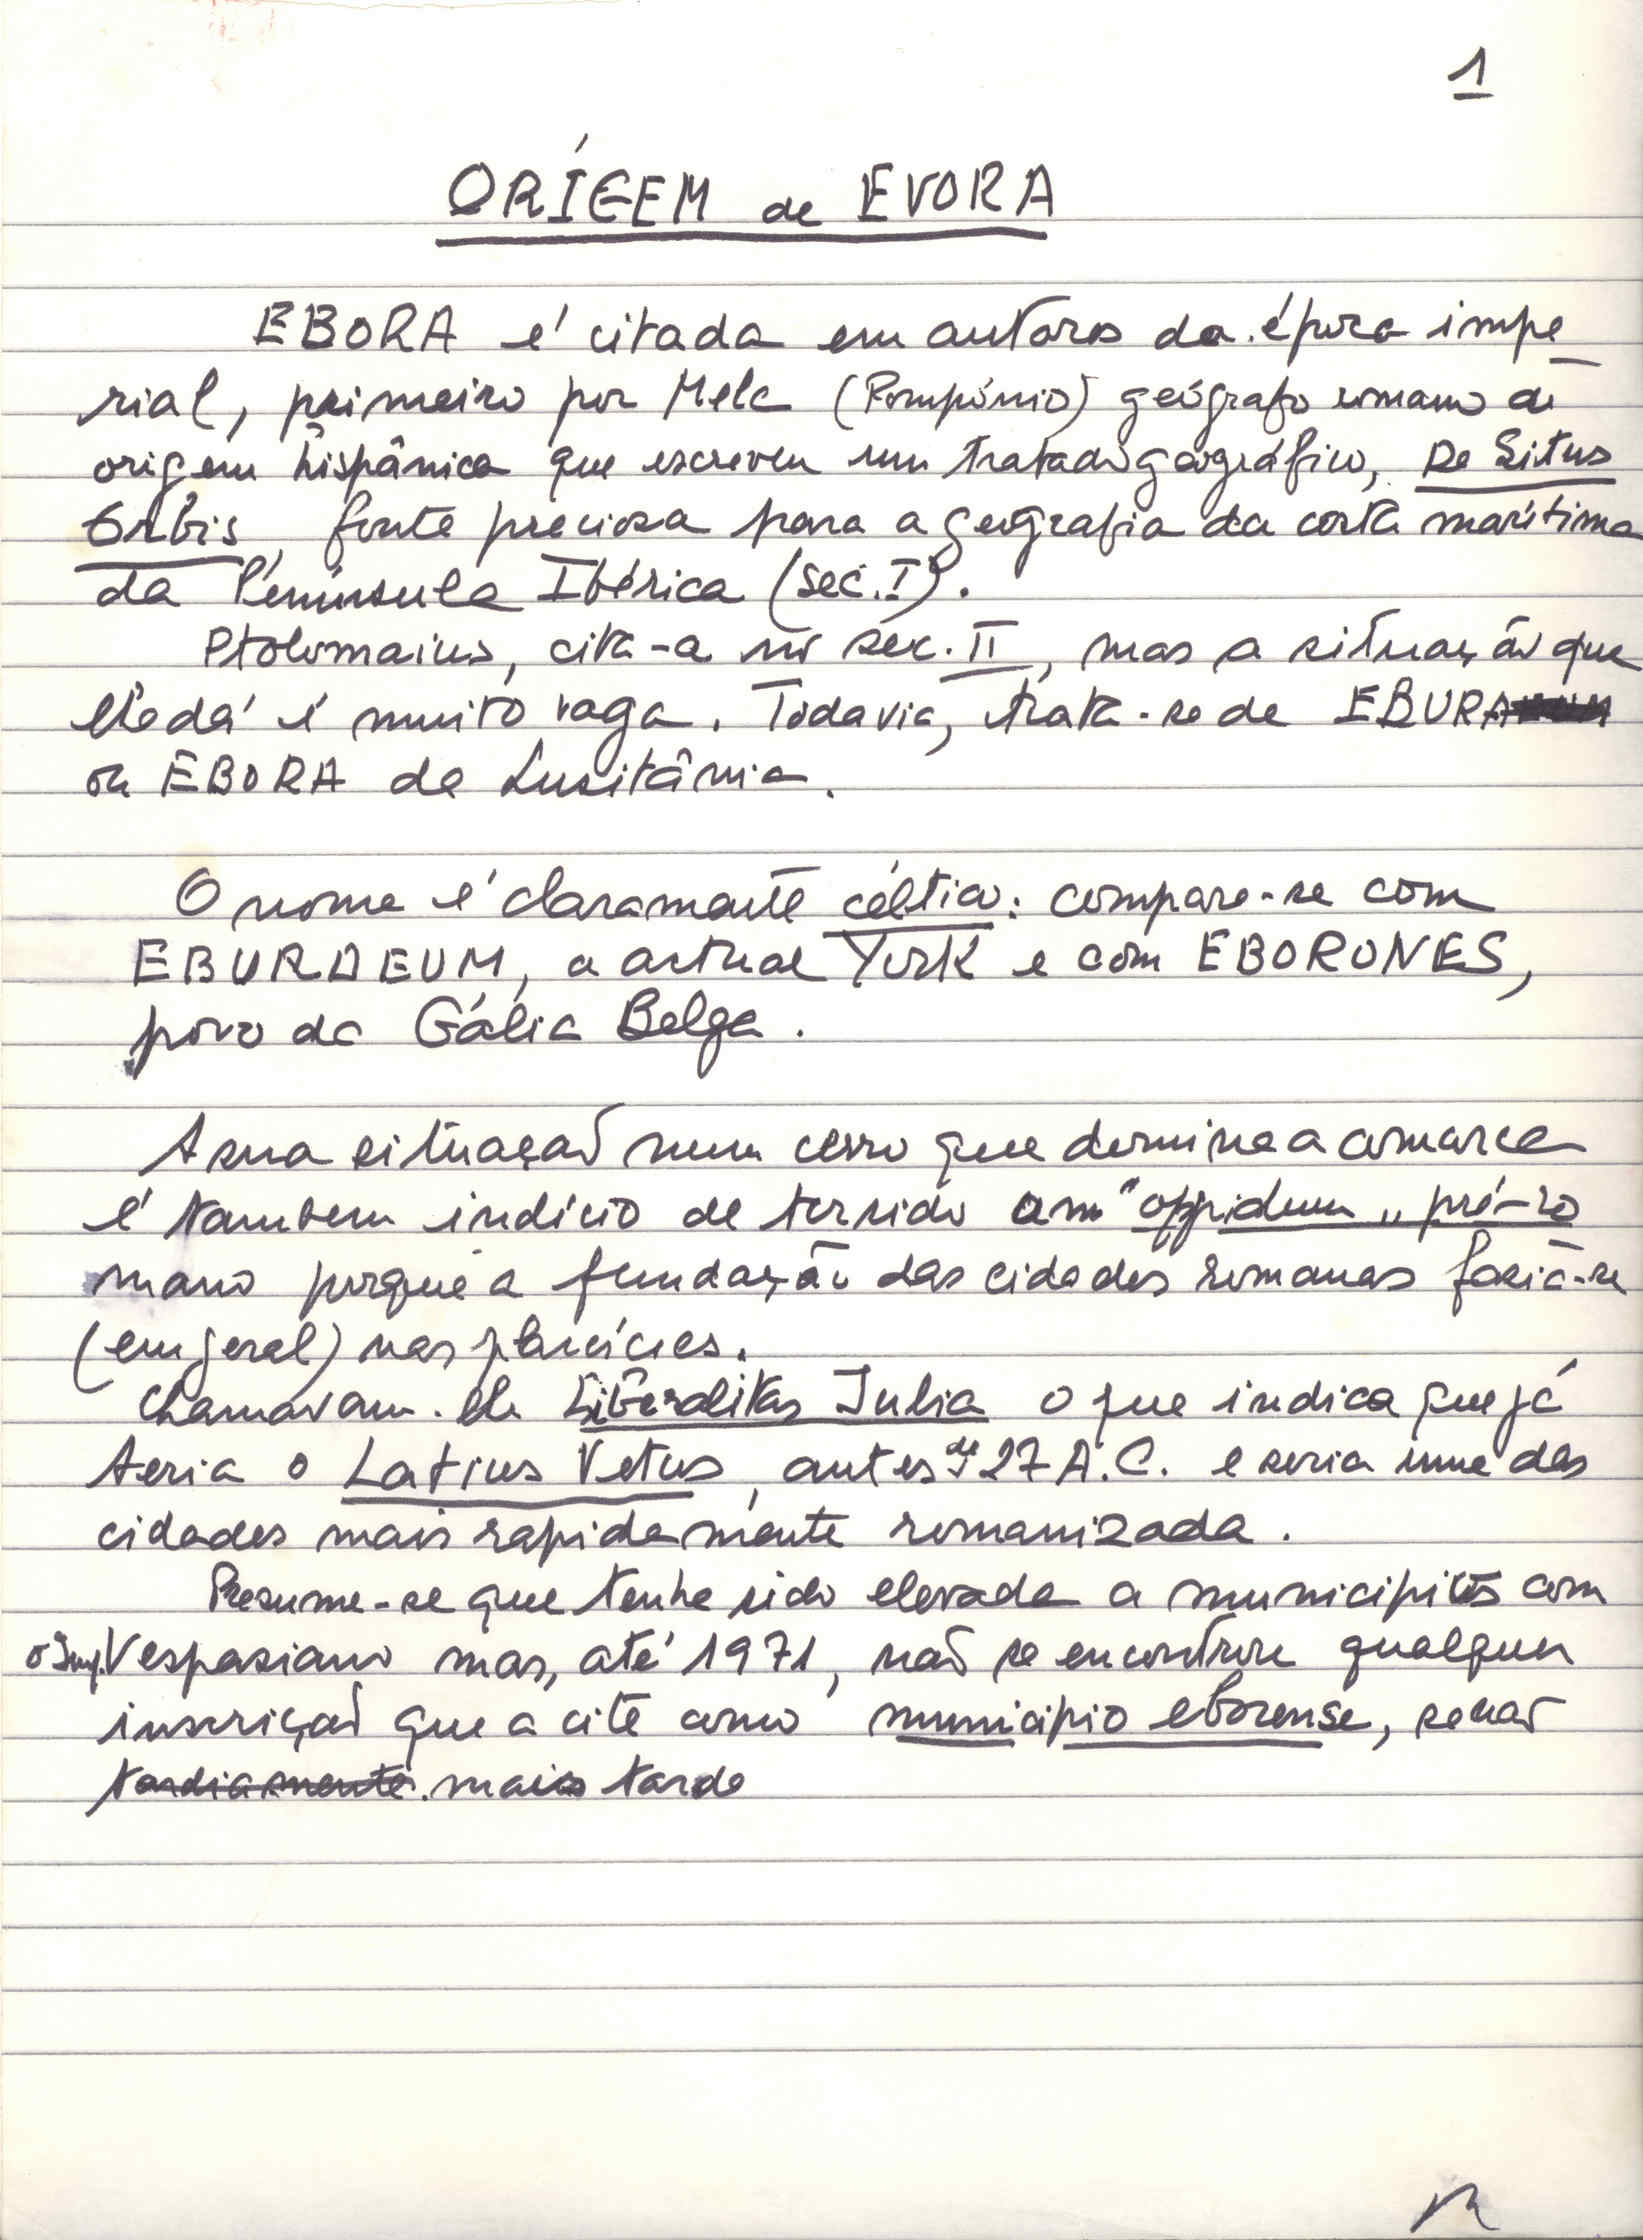 1
ORÍGEM de EVORA
EBORA é citada em autores da época impe
rial, primeiro por Mela (Pompónio) geógrafo romano de
origem hispânica que escreveu um tratado geográfico, De Situs
Orbis, fonte preciosa para a geografia da costa marítima
da Península Ibérica (séc. I).
Ptolomaius, cita-a no séc. II, mas a situação que
lhe dá é muito vaga. Todavia, trata-se de EBURA
ou EBORA da Lusitânia.
O nome é claramente céltico: compare-se com
EBURAEUM, a actual York e com EBORONES,
povo da Gália Belga.
A sua situação num cerro que domina a comarca
é tambem indício de ter sido um "oppidum" pré-ro
mano porque a fundação das cidades romanas fazia-se
(em geral) nas planícies.
Chamavam-lhe Liberalitas Julia o que indica que já
teria o Latius Vetus, antes de 27 A.C. e seria uma das
cidades mais rapidamente romanizada.
Presume-se que tenha sido elevada a municipius com
o Imp. Vespasiano mas, até 1971, não se encontrou qualquer
inscrição que a cite como municipio eborense, senão
tardiamente. mais tarde